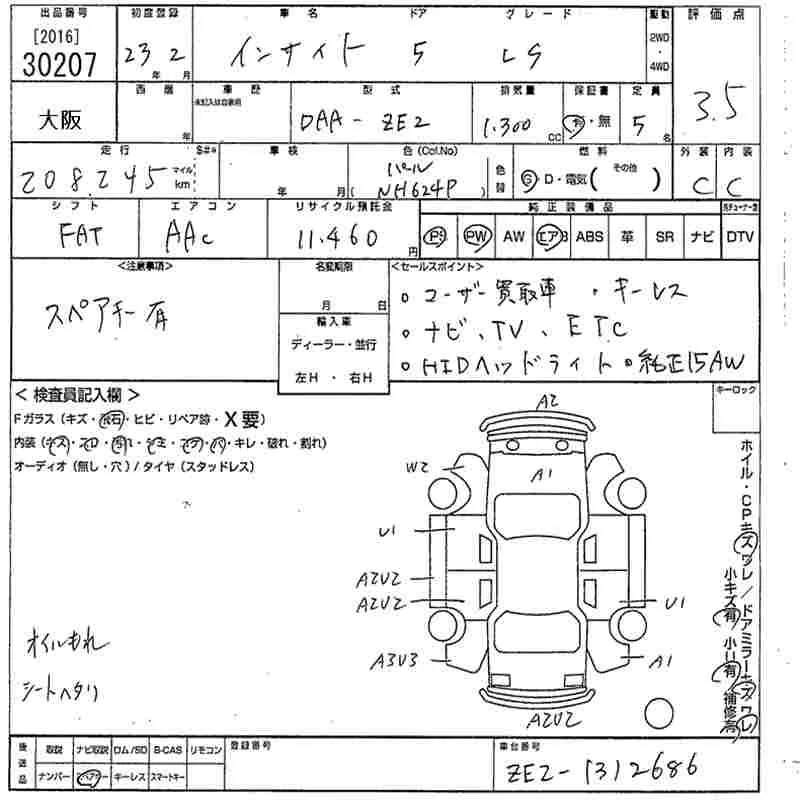 出品番号 初度登録 車名 ドア グレード 駆動 評価点
[2016]
30207 23年 2月 インサイト 5 LS 2WD・4WD 3.5
大阪 西暦 年 車歴 未記入は自家用 型式 DAA-ZE2 排気量 1.300cc 保証書 有・無 定員 5名
走行 車検 色(Col.No) 燃料 外装 内装
208.245 マイル km 年 月 パール ( NH624P ) 色替 G D・電気( その他 ) C C
シフト エアコン リサイクル預託金 純正装備品
FAT AAC 11.460円 PS PW AW エアB ABS 革 SR ナビ DTV
<注意事項> 名変期限 <セールスポイント>
スペアキー有 月 日
輸入車
ディーラー・並行
左H ・ 右H
○ ユーザー買取車 ・キーレス
○ ナビ、TV、ETC
○ HIDヘッドライト ○ 純正15AW
< 検査員記入欄 > キーロック
Fガラス(キズ・飛石・ヒビ・リペア跡・X要)
オーディオ(無し・穴)/タイヤ(スタッドレス)
A2
W2
A1
U1
A2U2
A2U2
U1
A3U3
A1
A2U2
ホイル・CPキズワレ/ドアミラーキズワレ
小キズ有 小U有 補修有
オイルもれ
シートヘタリ
後送品 取説 ナビ取説 ロム/SD B-CAS リモコン 登録番号 車台番号
ナンバー スペアキー キーレス スマートキー ZE2-1312686